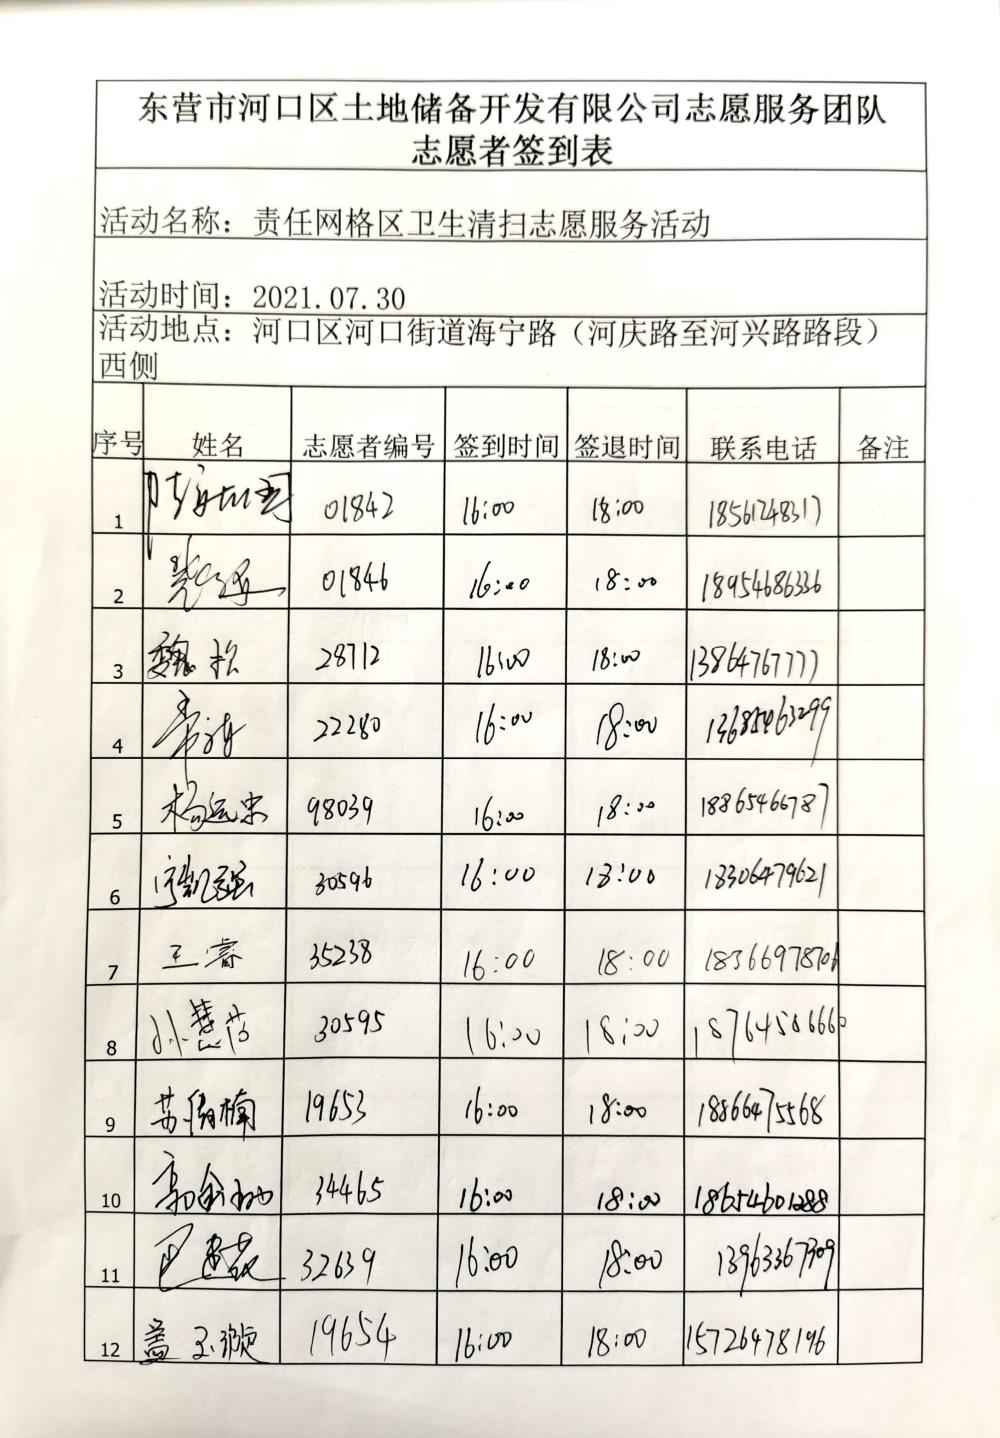 东营市河口区土地储备开发有限公司志愿服务团队
志愿者签到表
活动名称：责任网格区卫生清扫志愿服务活动
活动时间：2021.07.30
活动地点：河口区河口街道海宁路（河庆路至河兴路路段）
西侧
序号 姓名 志愿者编号 签到时间 签退时间 联系电话 备注
1 01842 16:00 18:00 18561248317
2 01846 16:00 18:00 18954686336
3 魏松 28712 16:00 18:00 13864767777
4 22280 16:00 18:00 13685463299
5 杨远忠 98039 16:00 18:00 18865466787
6 30596 16:00 18:00 18306479621
7 王睿 35238 16:00 18:00 18366978706
8 孙慧莎 30595 16:00 18:00 18764586660
9 苏倩楠 19653 16:00 18:00 18866475568
10 34465 16:00 18:00 18654601288
11 32639 16:00 18:00 13963367309
12 盖玉璇 19654 16:00 18:00 15726478196